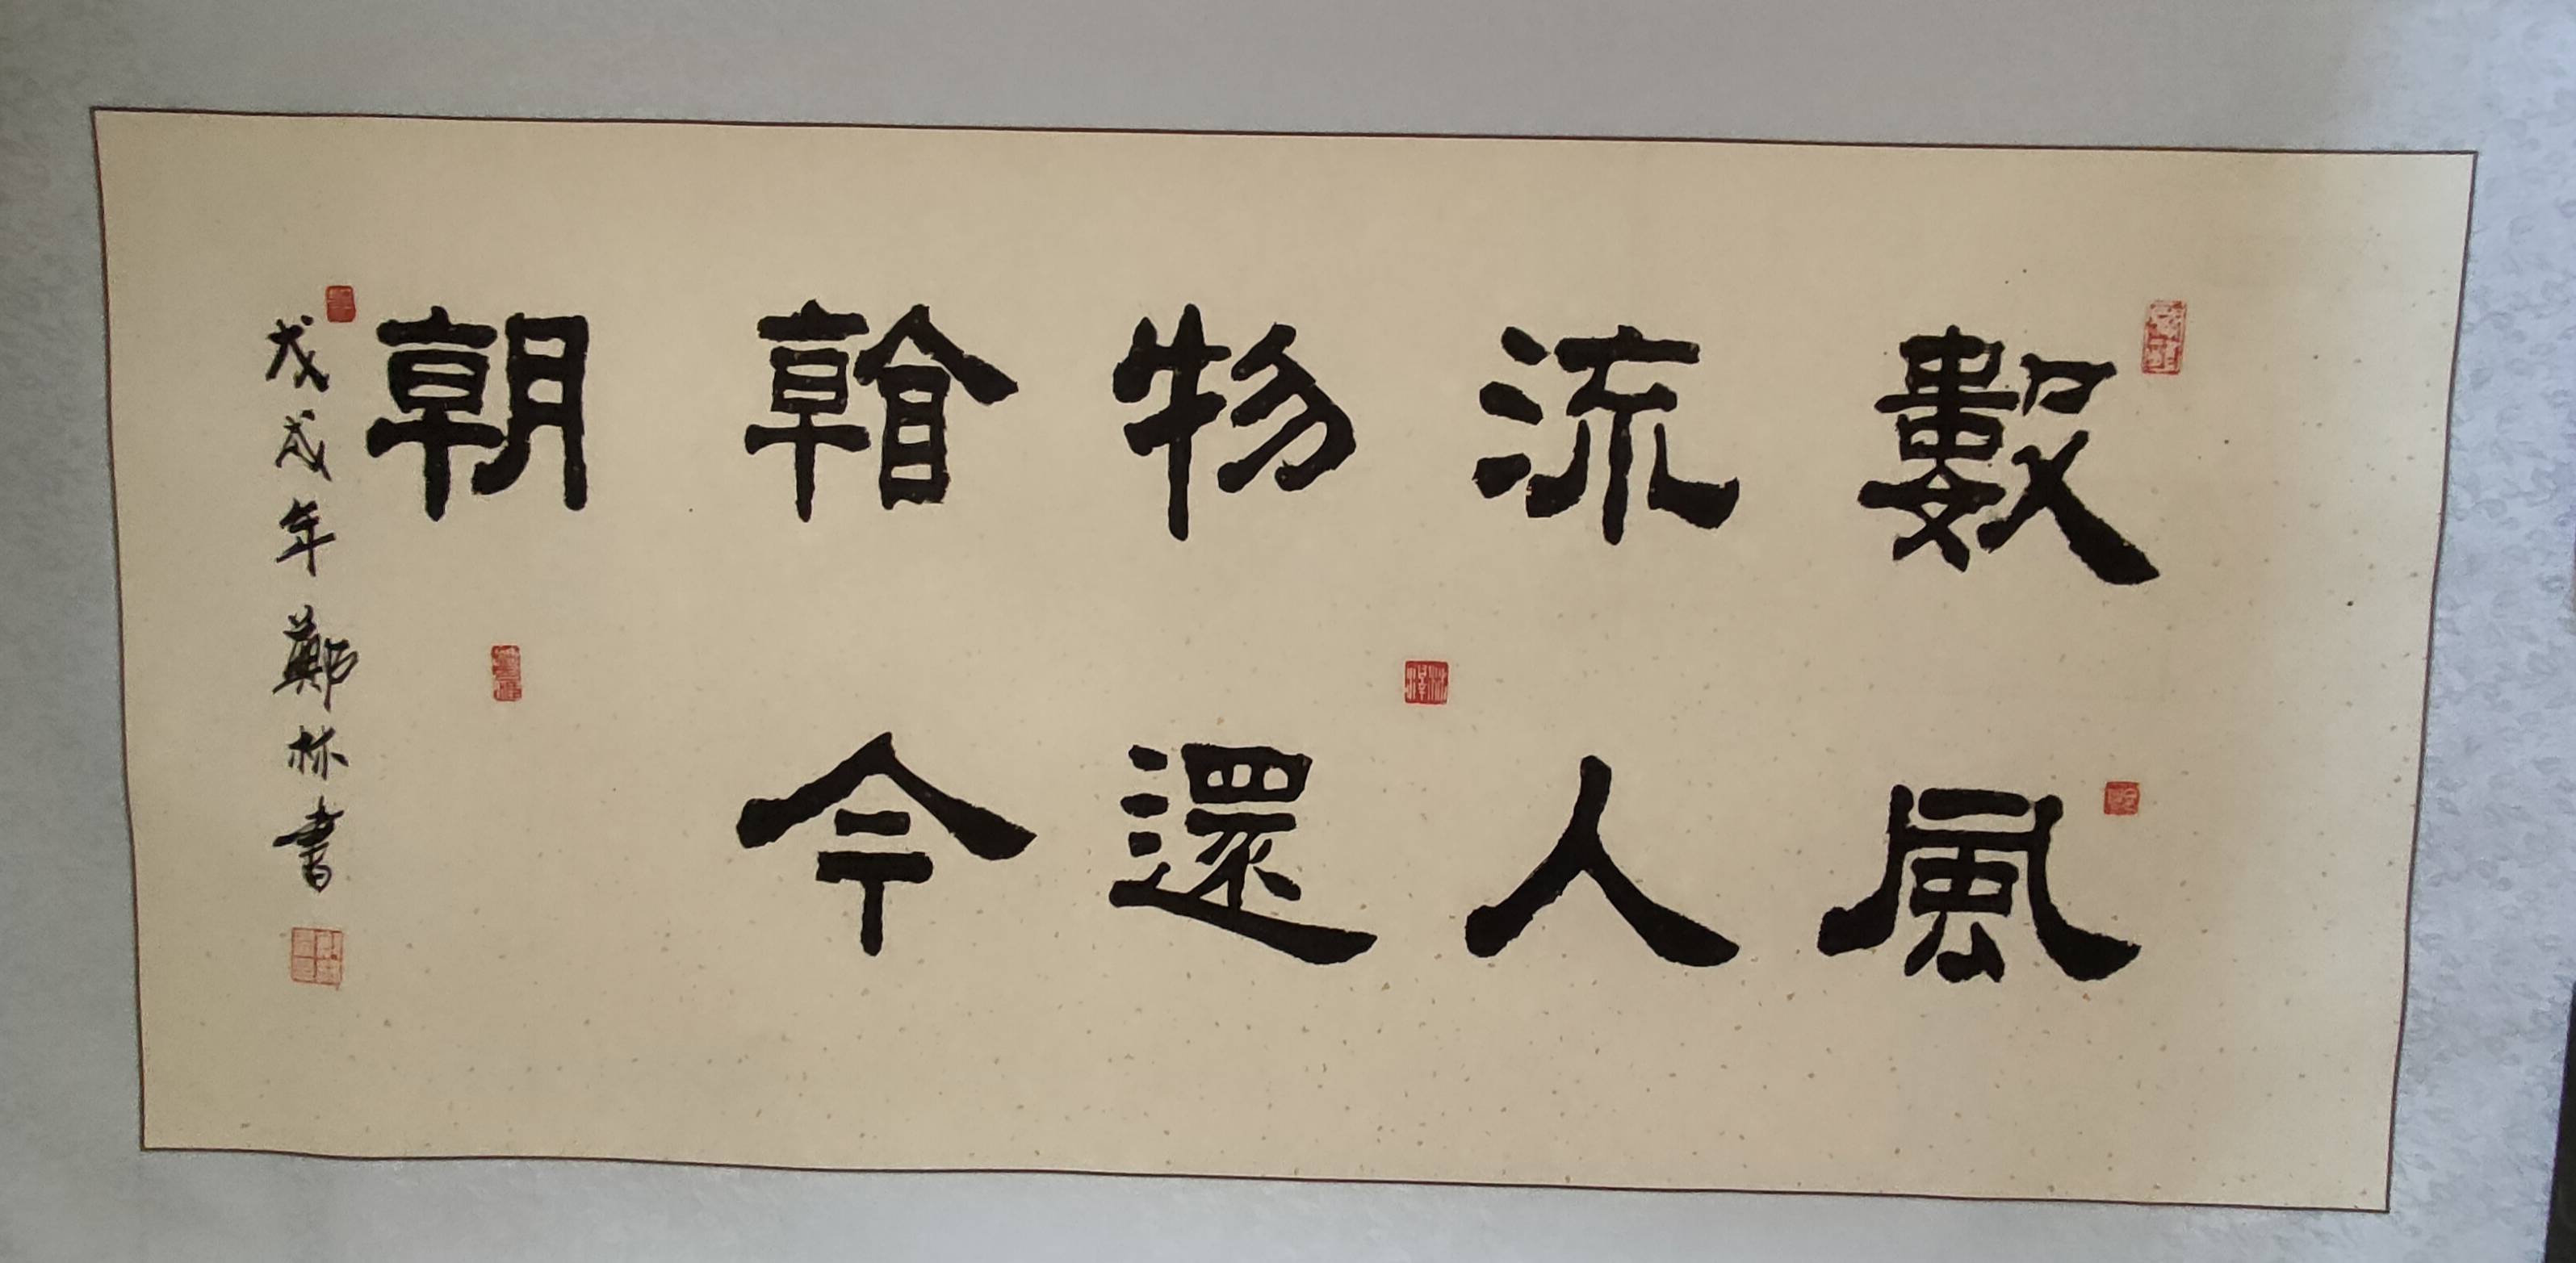 數風
流人
物還
𠦝今
朝
戊戌年鄭林書